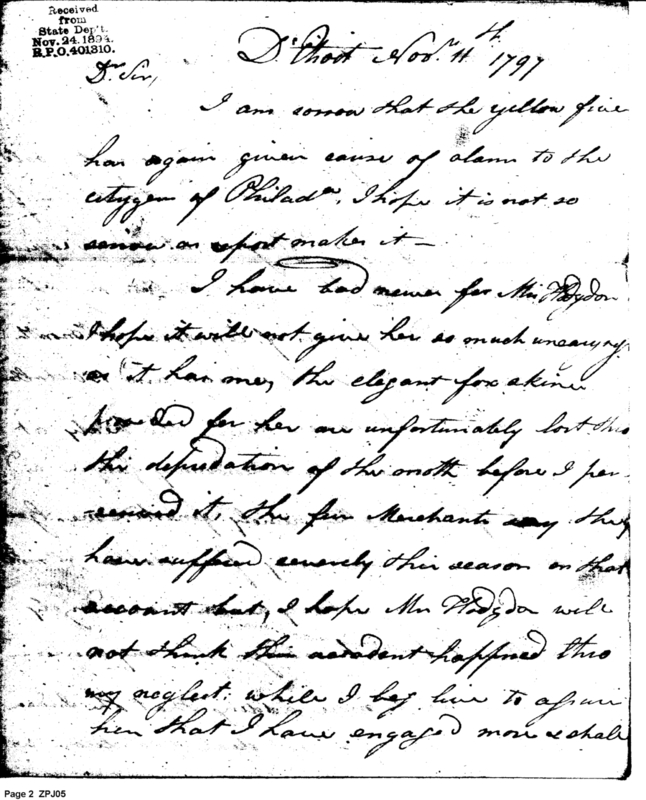 Received
from
State Dep't.
Nov. 24. 1894.
R.P.O. 401310.
D'Etroit Novr. 4th. 1797
Dr Sir,
I am sorrow that the yellow five
has again given cause of alarm to the
cityzens of Philada. I hope it is not so
serious as report makes it —
I have bad newes for Mrs Hodgdon
I hope it will not give her as much uneasyng
as it has me, the elegant fox skins
provided for her are unfortunately lost thro
the depredation of the moth before I per-
-ceived it, the fur Merchants say they
have suffered severely this season on that
account but, I hope Mrs Hodgdon will
not think this accident happned thro
my neglect. while I beg live to assure
her that I have engaged more & shall
Page 2 ZPJ05